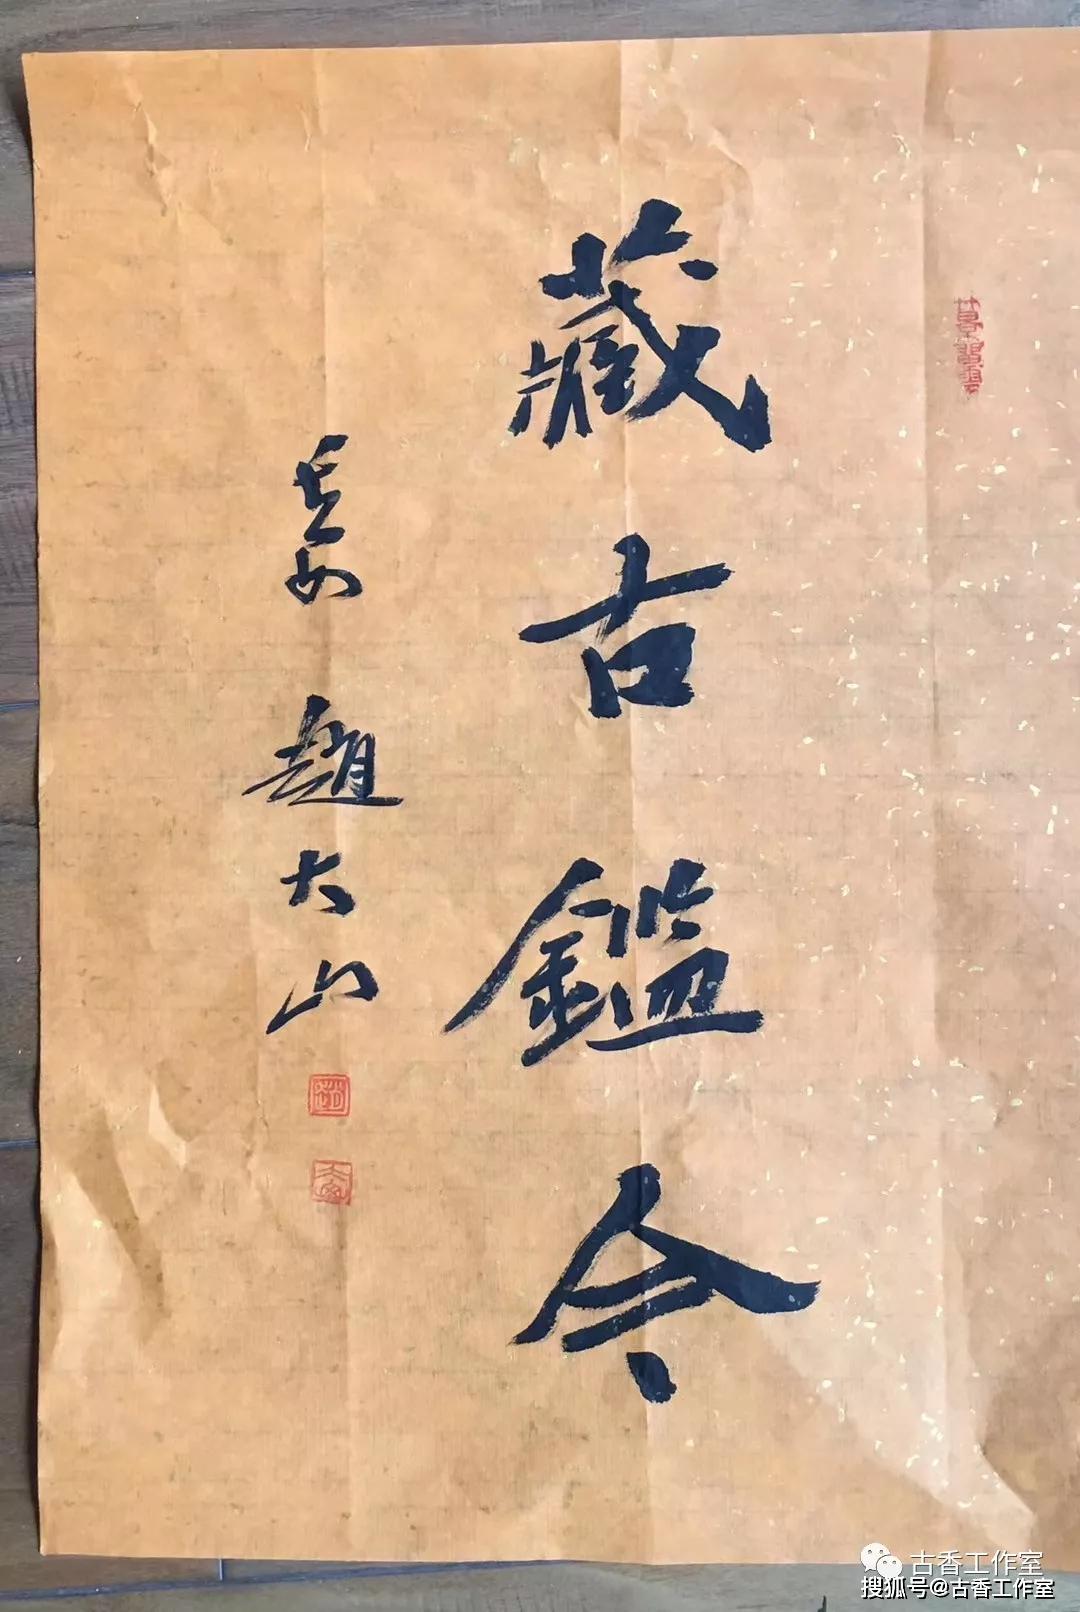 藏古鑑今
趙大山
趙
古香工作室
搜狐号@古香工作室